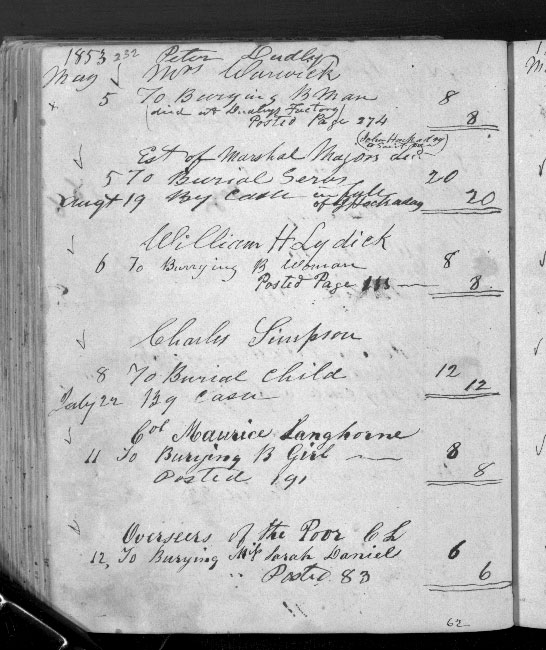 1853 232 Peter Dudly
May Mrs Warwick
x 5 To Burying B Man 8
(died at Dudlys Factory)
Posted Page 274 8
(John Hockaday
Est of Marshal Majors dec
5 To Burial Servs 20
Augt 19 By Cash in full of J Hockaday 20
William H Lydick
6 To Burying B Woman 8
Posted Page 111 8
Charles Simpson
8 To Burial Child 12
12
July 22 By Cash
Col Maurice Langhorne
11 To Burying B Girl 8
Posted 191 8
Overseers of the Poor C L
12, To Burying Mrs Sarah Daniels 6
" Posted 83 6
62